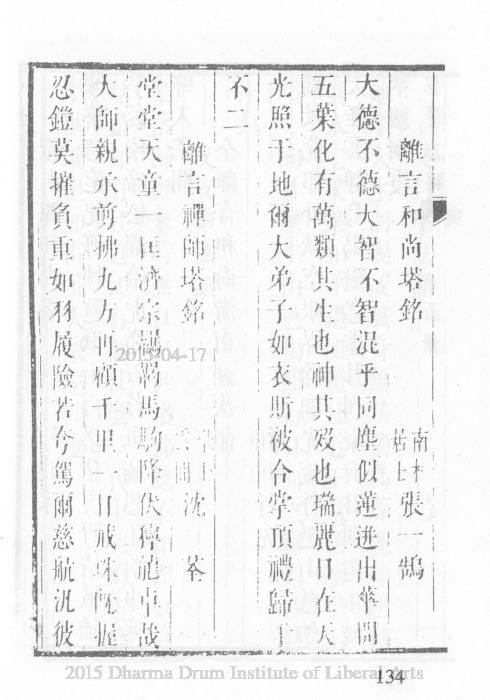 離言和尚塔銘
南木居士張一鵠
大德不德大智不智混乎同塵似蓮迸出華開
五葉化有萬類其生也神其歿也瑞麗日在天
光照于地爾大弟子如衣斯被合掌頂禮歸于
不二
離言禪師塔銘
沈荃
堂堂天童一匡濟宗羈馬駒降伏獰龍卓哉
大師親承剪拂九方再顧千里一日戒珠既握
忍鎧莫摧負重如羽履險若夸篤爾慈航汎彼
2015-04-17
2015 Dharma Drum Institute of Liberal Arts
134